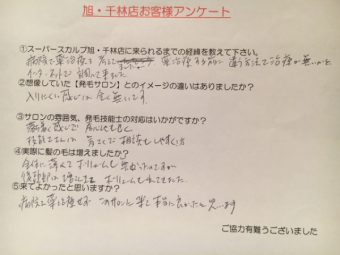 旭・千林店お客様アンケート
①スーパースカルプ旭・千林店に来られるまでの経緯を教えて下さい。
病院で薬治療を 薬治療する前に 違う方法で治療が無いかを
インターネットで 調べて来ました
②想像していた【発毛サロン】とのイメージの違いはありましたか？
入りにくい感じは全く無いです。
③サロンの雰囲気、発毛技能士の対応はいかがですか？
清潔感じで 居心地も良く
技能士さんは 相談もしやすい方
④実際に髪の毛は増えましたか？
全体に薄くて ボリュームも無かったのですが
後頭部は 増して ボリュームも出てきました。
⑤来てよかったと思いますか？
病院で薬を 飲まず このサロンに来て 本当に良かったと思います
ご協力有難うございました